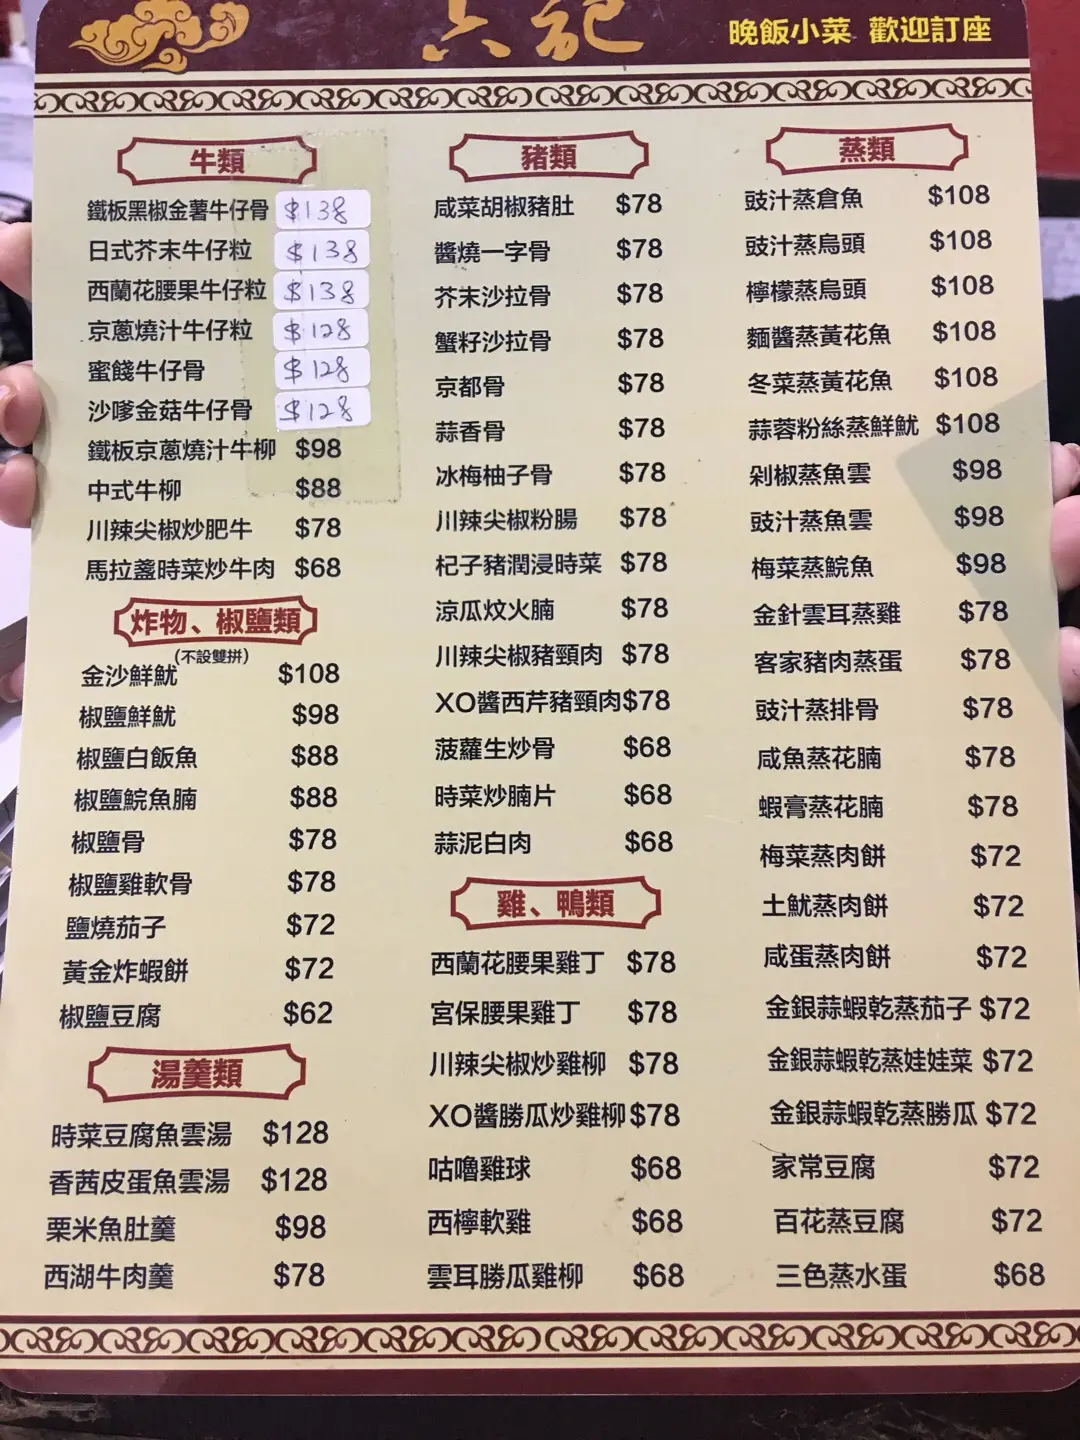 六記
晚飯小菜 歡迎訂座
牛類
鐵板黑椒金薯牛仔骨 $138
日式芥末牛仔粒 $138
西蘭花腰果牛仔粒 $138
京蔥燒汁牛仔粒 $128
蜜餞牛仔骨 $128
沙嗲金菇牛仔骨 $128
鐵板京蔥燒汁牛柳 $98
中式牛柳 $88
川辣尖椒炒肥牛 $78
馬拉盞時菜炒牛肉 $68
炸物、椒鹽類
(不設雙拼)
金沙鮮魷 $108
椒鹽鮮魷 $98
椒鹽白飯魚 $88
椒鹽鯇魚腩 $88
椒鹽骨 $78
椒鹽雞軟骨 $78
鹽燒茄子 $72
黃金炸蝦餅 $72
椒鹽豆腐 $62
湯羹類
時菜豆腐魚雲湯 $128
香茜皮蛋魚雲湯 $128
栗米魚肚羹 $98
西湖牛肉羹 $78
豬類
咸菜胡椒豬肚 $78
醬燒一字骨 $78
芥末沙拉骨 $78
蟹籽沙拉骨 $78
京都骨 $78
蒜香骨 $78
冰梅柚子骨 $78
川辣尖椒粉腸 $78
杞子豬潤浸時菜 $78
涼瓜炆火腩 $78
川辣尖椒豬頸肉 $78
XO醬西芹豬頸肉 $78
菠蘿生炒骨 $68
時菜炒腩片 $68
蒜泥白肉 $68
雞、鴨類
西蘭花腰果雞丁 $78
宮保腰果雞丁 $78
川辣尖椒炒雞柳 $78
XO醬勝瓜炒雞柳 $78
咕嚕雞球 $68
西檸軟雞 $68
雲耳勝瓜雞柳 $68
蒸類
豉汁蒸倉魚 $108
豉汁蒸烏頭 $108
檸檬蒸烏頭 $108
麵醬蒸黃花魚 $108
冬菜蒸黃花魚 $108
蒜蓉粉絲蒸鮮魷 $108
剁椒蒸魚雲 $98
豉汁蒸魚雲 $98
梅菜蒸鯇魚 $98
金針雲耳蒸雞 $78
客家豬肉蒸蛋 $78
豉汁蒸排骨 $78
咸魚蒸花腩 $78
蝦膏蒸花腩 $78
梅菜蒸肉餅 $72
土魷蒸肉餅 $72
咸蛋蒸肉餅 $72
金銀蒜蝦乾蒸茄子 $72
金銀蒜蝦乾蒸娃娃菜 $72
金銀蒜蝦乾蒸勝瓜 $72
家常豆腐 $72
百花蒸豆腐 $72
三色蒸水蛋 $68